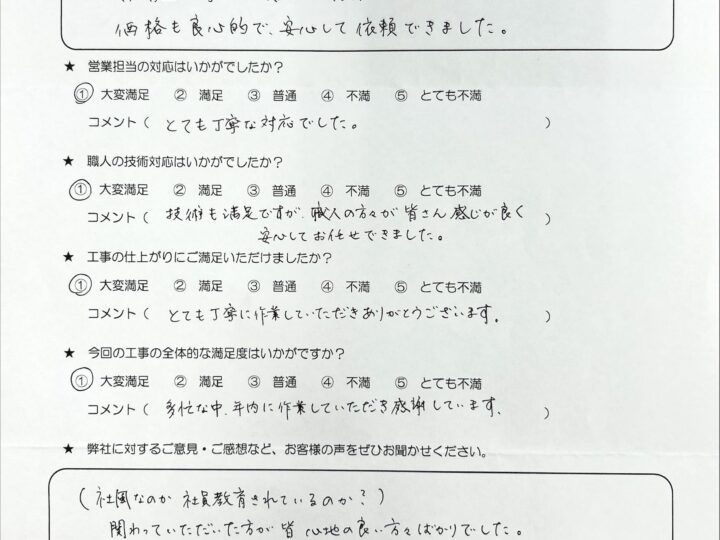 価格も良心的で、安心して依頼できました。
★ 営業担当の対応はいかがでしたか?
① 大変満足 ② 満足 ③ 普通 ④ 不満 ⑤ とても不満
コメント( とても丁寧な対応でした。 )
★ 職人の技術対応はいかがでしたか?
① 大変満足 ② 満足 ③ 普通 ④ 不満 ⑤ とても不満
コメント( 技術も満足ですが、職人の方々が皆さん感じが良く )
安心してお任せできました。
★ 工事の仕上がりにご満足いただけましたか?
① 大変満足 ② 満足 ③ 普通 ④ 不満 ⑤ とても不満
コメント( とても丁寧に作業していただきありがとうございます。 )
★ 今回の工事の全体的な満足度はいかがですか?
① 大変満足 ② 満足 ③ 普通 ④ 不満 ⑤ とても不満
コメント( 多忙な中、年内に作業していただき感謝しています。 )
★ 弊社に対するご意見・ご感想など、お客様の声をぜひお聞かせください。
(社風なのか 社員教育されているのか?)
関わっていただいた方が皆 心地の良い方々ばかりでした。